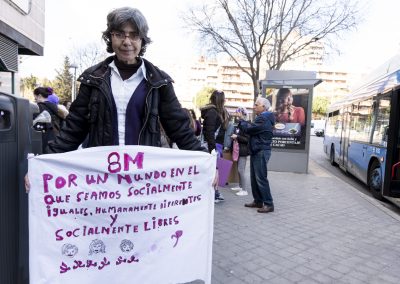 8M
POR UN MUNDO EN EL
QUE SEAMOS SOCIALMENTE
IGUALES, HUMANAMENTE DIFERENTES
Y
SOCIALMENTE LIBRES